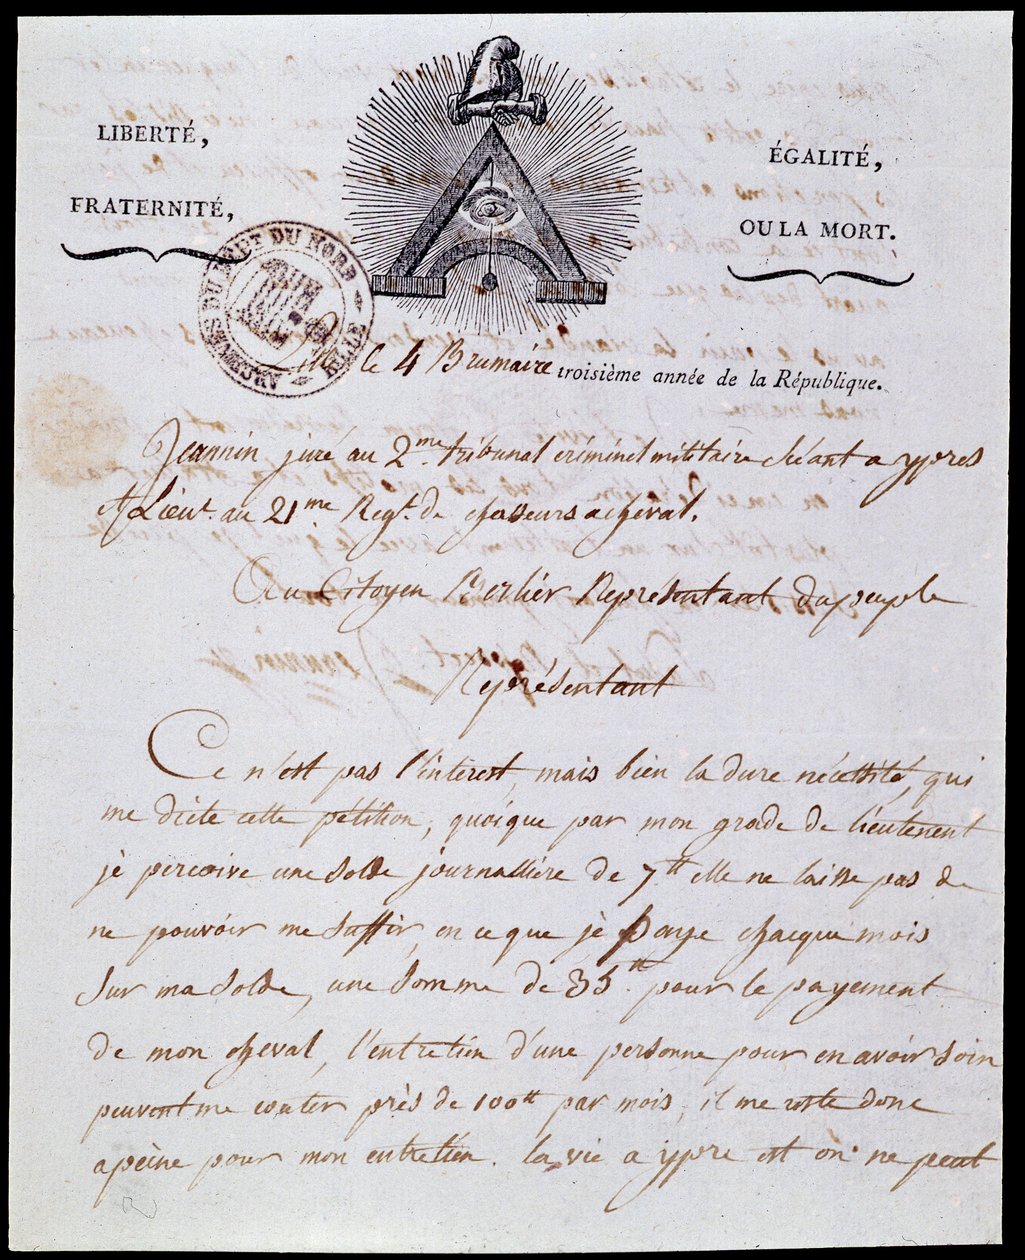 LIBERTÉ,
FRATERNITÉ,
ÉGALITÉ,
OU LA MORT.
ARCHIVES DU DÉPUT DU NORD
LILLE
Lille le 4 Brumaire troisième année de la République.
Jeannin juré au 2me. tribunal criminel militaire séant a ypres
et Lieut. au 21me Regt. de chasseurs a cheval.
Au Citoyen Berlier Représentant du peuple
Représentant
Ce n'est pas l'interest, mais bien la dure nécessité, qui
me dicte cette pétition, quoique par mon grade de lieutenent
je percoive une solde journalliére de 7tt elle ne laisse pas de
ne pouvoir me suffir, en ce que je paye chacque mois
sur ma solde, une somme de 35tt. pour le payement
de mon cheval, l'entretien d'une personne pour en avoir soin
peuvent me couter près de 100tt par mois, il me reste donc
apeine pour mon entretien. la vie a ypre est on ne peut